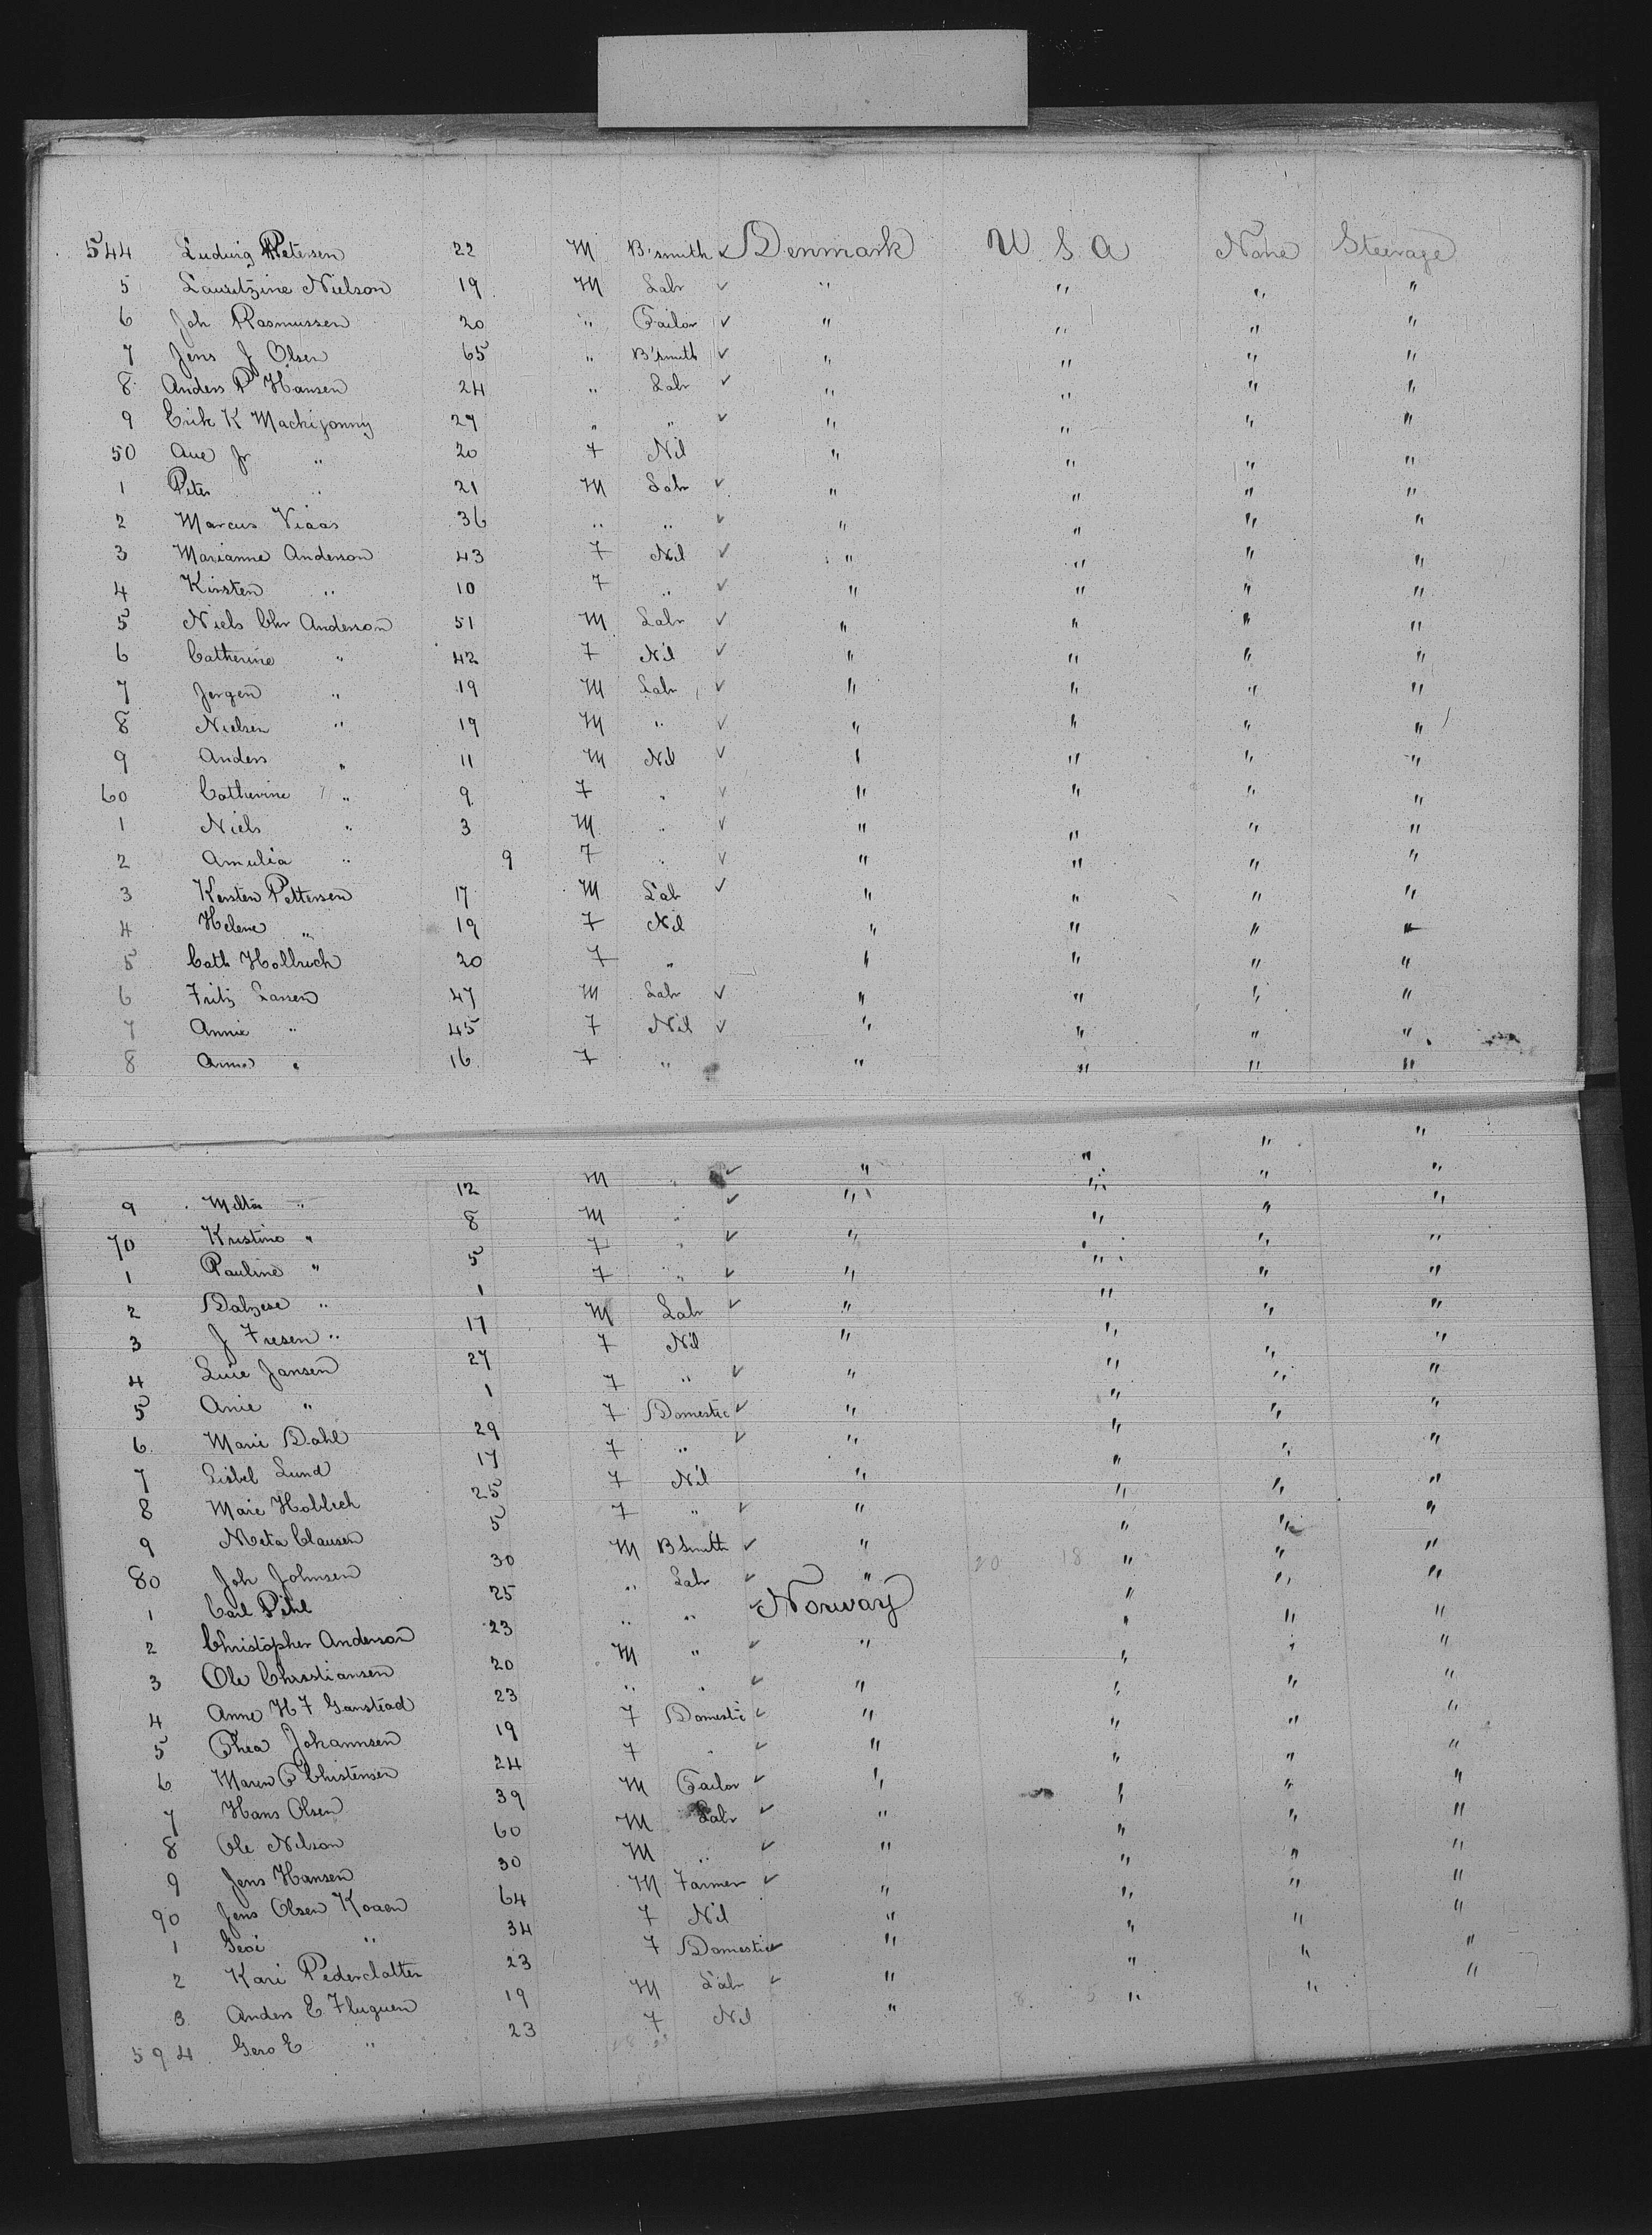 544 Ludwig Petersen 22 M B'smith ✓ Denmark U S A None Steerage
5 Lauritzine Nielson 19 M Labr ✓ " " " "
6 Joh Rasmussen 20 " Tailor ✓ " " " "
7 Jens J Olsen 65 " B'smith ✓ " " " "
8 Anders P Hansen 24 " Labr ✓ " " " "
9 Erik K Mackijonny 27 " " ✓ " " " "
50 Ane Jr " 20 F Nil " " " "
1 Peter " 21 M Labr ✓ " " " "
2 Marcus Viaas 36 " " ✓ " " " "
3 Marianne Anderson 43 F Nil ✓ " " " "
4 Kirsten " 10 F " ✓ " " " "
5 Niels Chr Anderson 51 M Labr ✓ " " " "
6 Catherine " 42 F Nil ✓ " " " "
7 Jergen " 19 M Labr ✓ " " " "
8 Nielsen " 19 M " ✓ " " " "
9 Anders " 11 M Nil ✓ " " " "
60 Catherine " 9 F " ✓ " " " "
1 Niels " 3 M " ✓ " " " "
2 Amulia " 9 F " ✓ " " " "
3 Kersten Pettersen 17 M Lab ✓ " " " "
4 Helene " 19 F Nil " " " "
5 Cath Hollrich 20 F " " " " "
6 Fritz Lassen 47 M Labr ✓ " " " "
7 Annie " 45 F Nil ✓ " " " "
8 Anna " 16 F " " " " "
9 " 12 M " ✓ " " " "
70 Kristino " 8 M " ✓ " " " "
1 Pauline " 5 F " ✓ " " " "
2 " 1 F " ✓ " " " "
3 J Fresen " 17 M Labr ✓ " " " "
4 Luie Jansen 27 F Nil " " " "
5 Anie " 1 F " ✓ " " " "
6 Marie Dahl 29 F Domestic ✓ " " " "
7 Lisbel Lund 17 F " ✓ " " " "
8 Marie Hollich 25 F Nil " " " "
9 Meta Clausen 5 F " ✓ " " " "
80 Joh Johnsen 30 M B'Smith ✓ " " " "
1 Carl Pihl 25 " Labr ✓ " " " "
2 Christopher Anderson 23 " " ✓ Norway " " "
3 Ole Christiansen 20 M " ✓ " " " "
4 Anne H F Ganstead 23 " " ✓ " " " "
5 Thea Johannsen 19 F Domestic ✓ " " " "
6 Maren C Christensen 24 F " ✓ " " " "
7 Hans Olsen 39 M Tailor ✓ " " " "
8 Ole Nilson 60 M Labr ✓ " " " "
9 Jens Hansen 30 M " ✓ " " " "
90 Jens Olsen Koaen 64 M Farmer ✓ " " " "
1 " 34 F Nil " " " "
2 Kari Pederdatter 23 F Domestic ✓ " " " "
3 Anders E Fluguen 19 M Labr ✓ " " " "
594 Gero E " 23 F Nil " " "